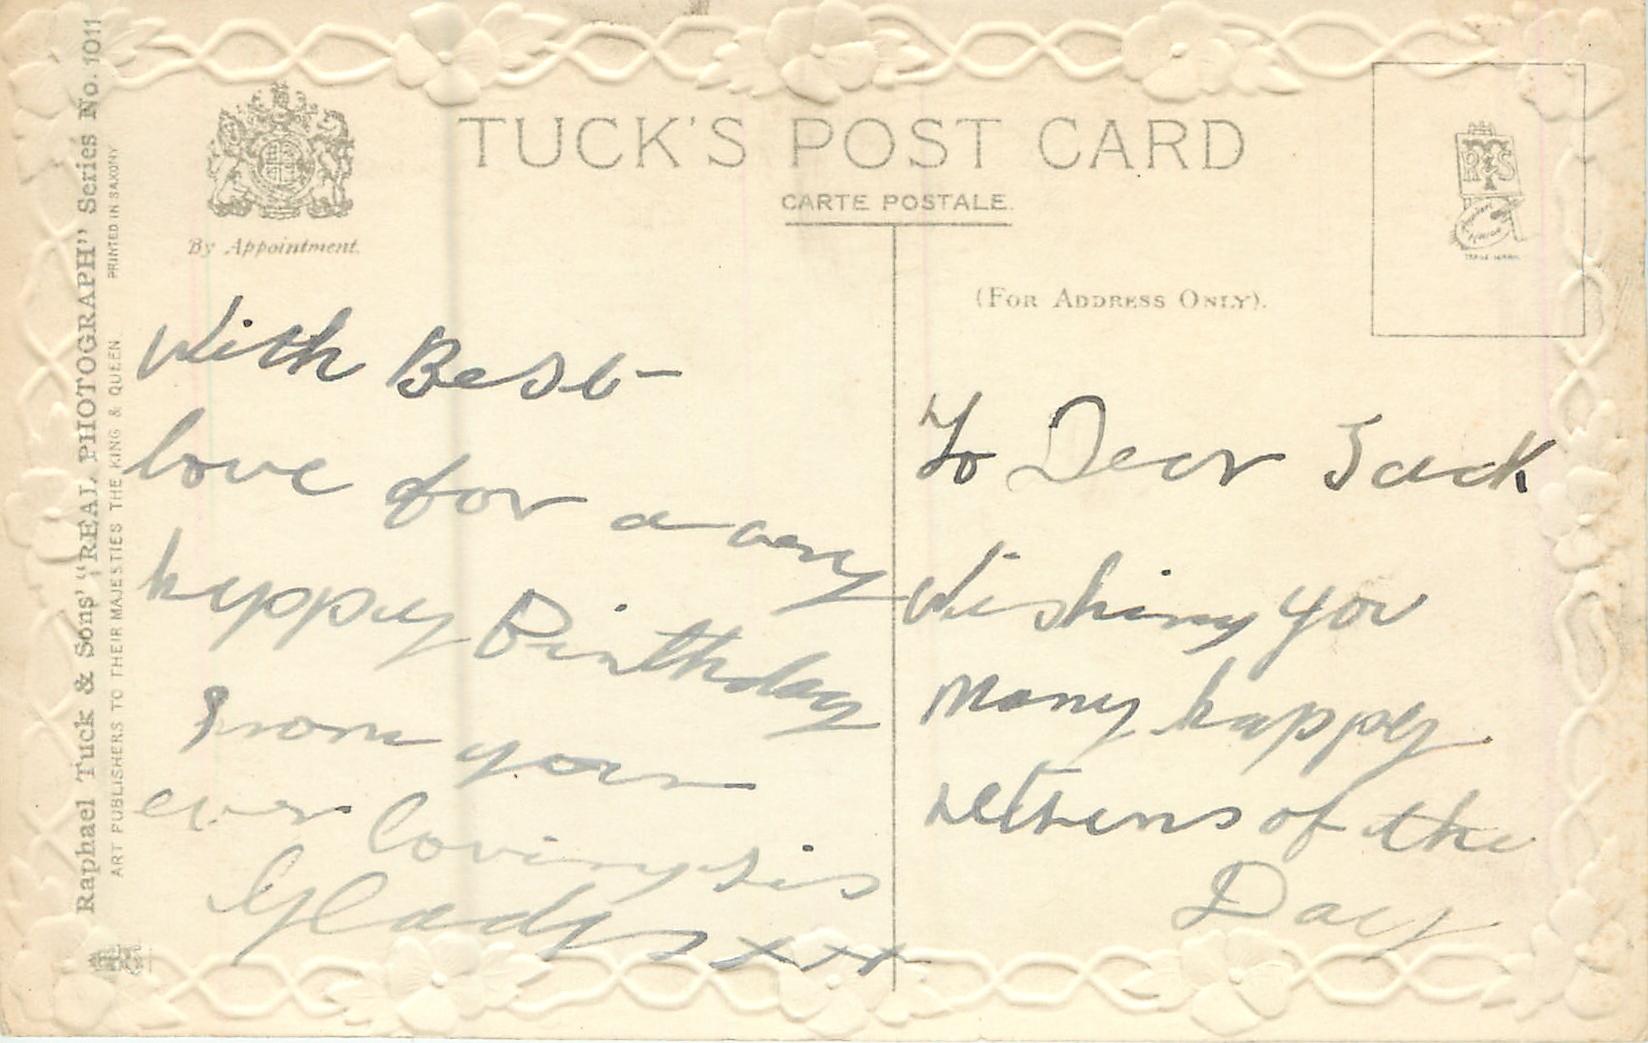 TUCK'S POST CARD
CARTE POSTALE.
By Appointment.
(FOR ADDRESS ONLY).
R T & S
TRADE MARK.
Raphael Tuck & Sons' "REAL PHOTOGRAPH" Series No. 1011
ART PUBLISHERS TO THEIR MAJESTIES THE KING & QUEEN. PRINTED IN SAXONY
With Best
love for a very
happy Birthday
From your
ever loving sis
Gladys xxx
To Dear Jack
Wishing you
Many happy
returns of the
Day